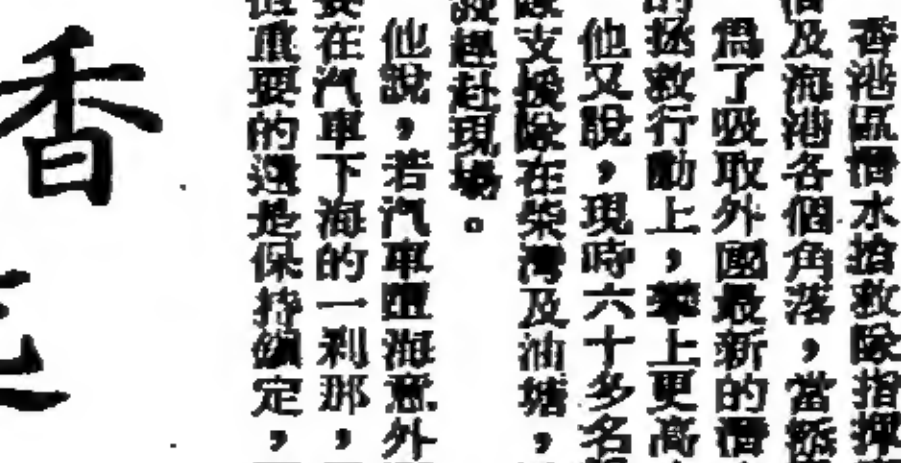 香港區潛水搶救隊指揮
及海港各個角落，當
為了吸取外國最新的潛
的拯救行動上，攀上更高
他又說，現時六十多名
支援隊在柴灣及油塘，
趕赴現場。
他說，若汽車墮海意外
要在汽車下海的一刹那，
重要的還是保持鎮定，
香